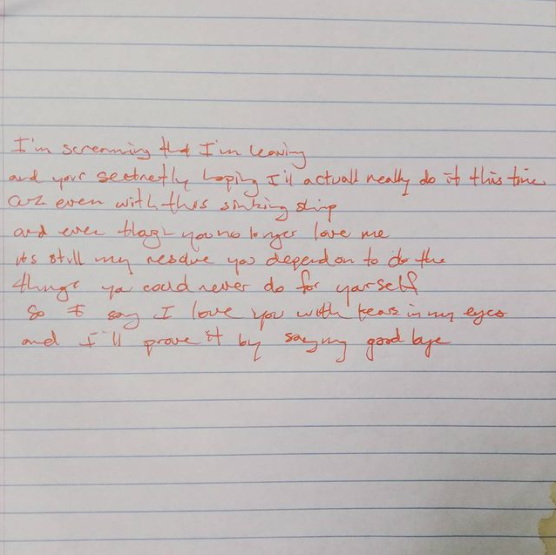 I'm screaming that I'm leaving
and your secretly hoping I'll actuall really do it this time
even with this sinking ship
and even though you no longer love me
its still my resolve you depend on to do the
things you could never do for yourself
So I say I love you with tears in my eyes
and I'll prove it by saying good bye